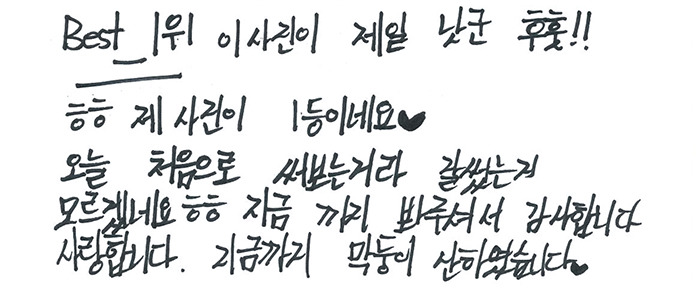 Best 1위 이 사진이 제일 낫군 후훗!!
ㅎㅎ 제 사진이 1등이네요♥
오늘 처음으로 써보는거라 잘썼는지
모르겠네요ㅎㅎ 지금 까지 봐주셔서 감사합니다
사랑합니다. 지금까지 막둥이 산하였습니다♥